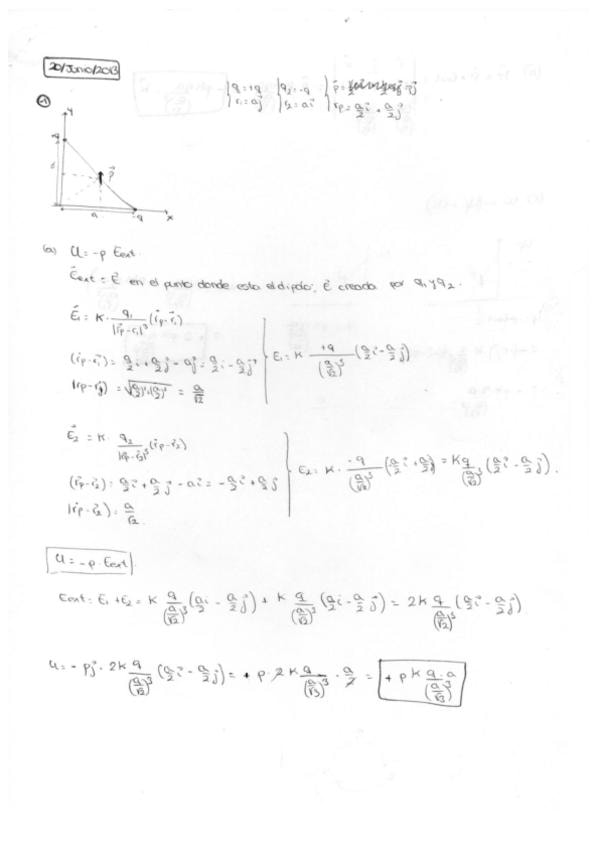 20/Junio/2013
q₁=+q r₁=aj q₂=-q r₂=ai p⃗= pj rp= a/2 i + a/2 j
y
+q
p⃗
a -q x
(a) U = -p Eext.
Eext = E⃗ en el punto donde esta el dipolo; E⃗ creada por q₁ y q₂.
E⃗₁ = K· q₁/|rp-r₁|³ (rp-r₁)
(rp-r₁) = a/2 i + a/2 j - aj = a/2 i - a/2 j
E₁ = K +q/(a/√2)³ (a/2 i - a/2 j)
|rp-r₁| = √((a/2)²+(a/2)²) = a/√2
E⃗₂ = K· q₂/|rp-r₂|³ (rp-r₂)
(rp-r₂) = a/2 i + a/2 j - ai = -a/2 i + a/2 j
E₂ = K· -q/(a/√2)³ (a/2 i + a/2 j) = K q/(a/√2)³ (a/2 i - a/2 j).
|rp-r₂| = a/√2.
U = -p·Eext.
Eext = E₁+E₂ = K q/(a/√2)³ (a/2 i - a/2 j) + K q/(a/√2)³ (a/2 i - a/2 j) = 2K q/(a/√2)³ (a/2 i - a/2 j)
U = -pj · 2K q/(a/√2)³ (a/2 i - a/2 j) = + p·2K q/(a/√3)³ · a/2 = + pK q·a/(a/√3)³